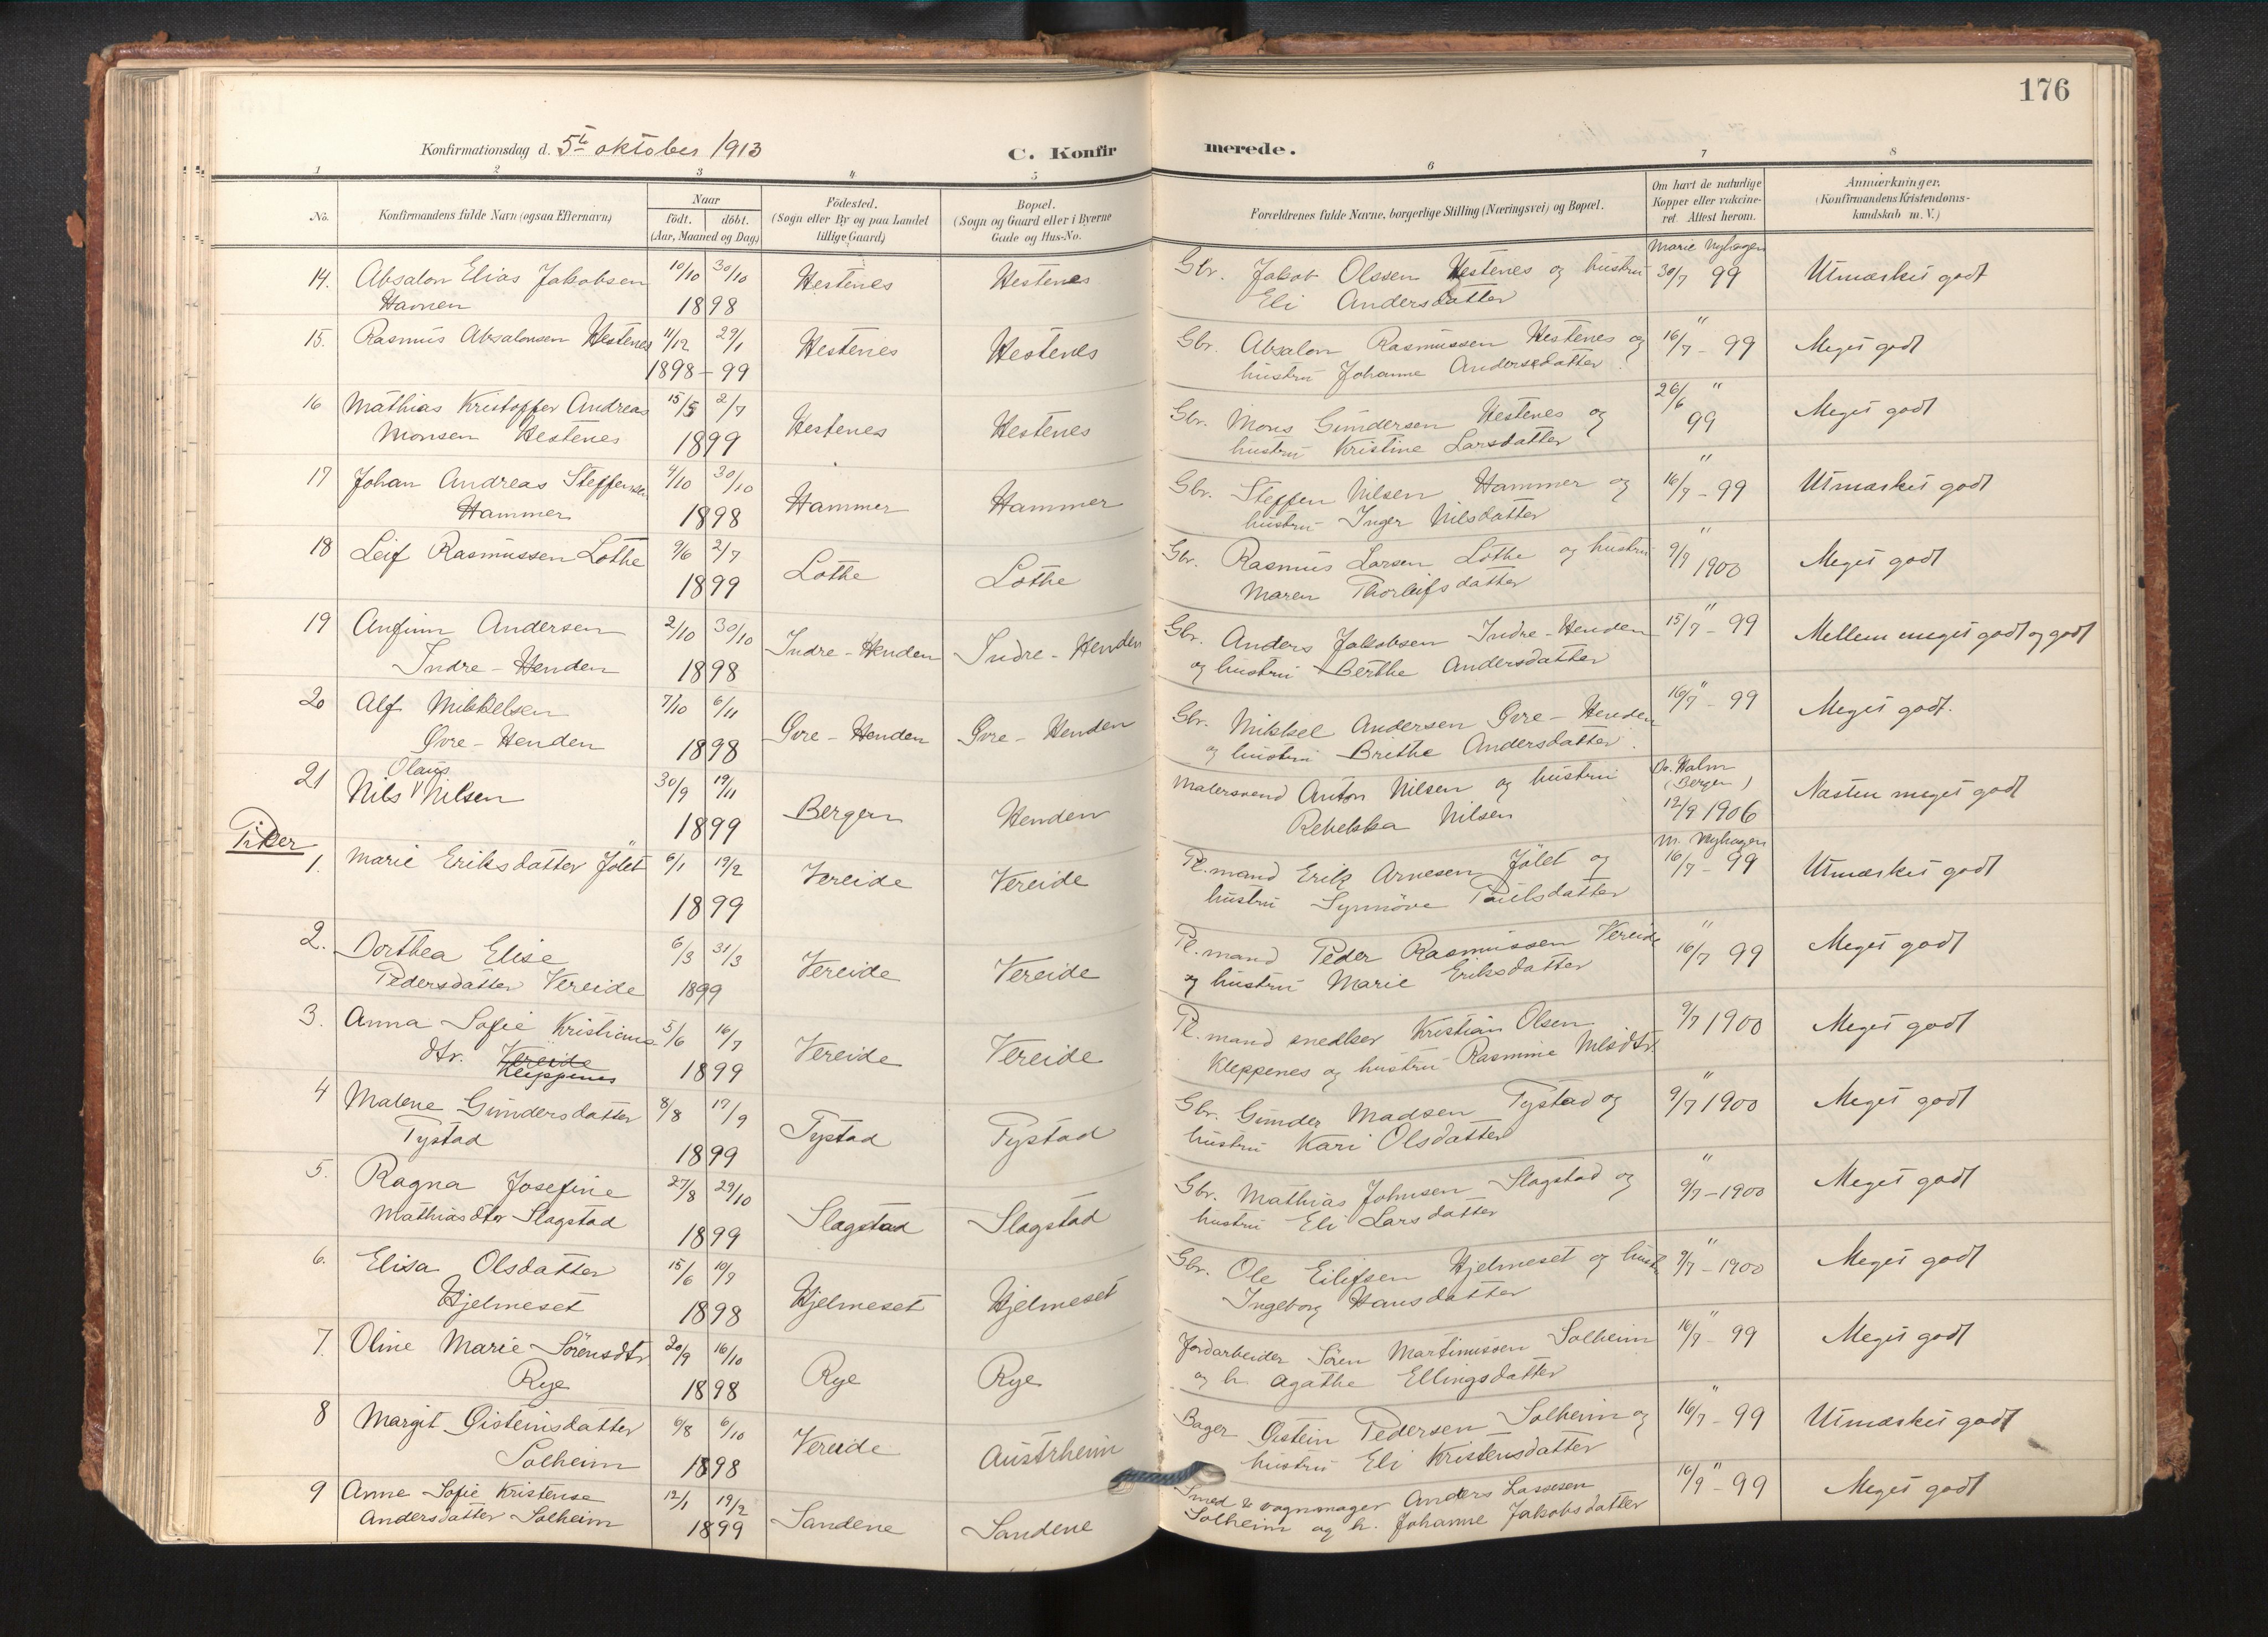 176
Konfirmationsdag d. 5te oktober 1913 C. Konfirmerede.
1 2 3 4 5 6 7 8
No. Konfirmandens fulde Navn (ogsaa Efternavn) Naar født. døbt. (Aar, Maaned og Dag) Fødested. (Sogn eller By og paa Landet tillige Gaard) Bopæl. (Sogn og Gaard eller i Byerne Gade og Hus-No. Forældrenes fulde Navne, borgerlige Stilling (Næringsvei) og Bopæl. Om havt de naturlige Kopper eller vakcineret. Attest herom. Anmærkninger. (Konfirmandens Kristendomskundskab m. V.)
14. Absalon Elias Jakobsen 10/10 30/10 Hestenes Hestenes Gbr. Jakob Olesen Hestenes og hustru Marie Nyhagen 30/7 99 Utmærket godt
Havnen 1898 Eli Andersdatter
15. Rasmus Absalonsen Hestenes 11/12 29/1 Hestenes Hestenes Gbr. Absalon Rasmussen Hestenes og " 16/7 - 99 Meget godt
1898 - 99 hustru Johanne Andersdatter
16 Mathias Kristoffer Andreas 15/5 2/7 Hestenes Hestenes Gbr. Mons Gundersen Hestenes og 26/6 " 99 Meget godt
Monsen Hestenes 1899 hustru Kristine Larsdatter
17 Johan Andreas Steffensen 9/10 30/10 Hammer Hammer Gbr. Steffen Nilsen Hammer og " 16/7 - 99 Utmærket godt
Hammer 1898 hustru Inger Nilsdatter
18 Leif Rasmussen Lothe 9/6 2/7 Lothe Lothe Gbr. Rasmus Larsen Lothe og hustru " 9/7 1900 Meget godt
1899 Maren Thorleifsdatter
19 Anfinn Andersen 2/10 30/10 Indre-Henden Indre-Henden Gbr. Anders Jakobsen Indre-Henden 15/7 " - 99 Mellem meget godt og godt
Indre-Henden 1898 og hustru Berthe Andersdatter
20 Alf Mikkelsen 7/10 6/11 Øvre-Henden Øvre-Henden Gbr. Mikkel Andersen Øvre-Henden 16/7 " - 99 Meget godt.
Øvre-Henden 1898 og hustru Brithe Andersdatter.
21 Nils Olaus Nilsen 30/9 19/11 Bergen Henden Malersvend Anton Nilsen og hustru Dr. Holm (Bergen) Næsten meget godt
1899 Rebekka Nilsen 12/9 1906
Piker
1. Marie Eriksdatter Jølet 6/1 19/2 Vereide Vereide Pl.mand Erik Arnesen Jølet og M. Nyhagen 16/7 - 99 Utmærket godt
1899 hustru Synnøve Paulsdatter
2. Dorthea Elise 6/3 31/3 Vereide Vereide Pl.mand Peder Rasmussen Vereide " 16/7 99 Meget godt
Pedersdatter Vereide 1899 og hustru Marie Eriksdatter
3. Anna Sofie Kristians 5/6 16/7 Vereide Vereide Pl.mand snedker Kristian Olsen 9/7 1900 Meget godt
dtr. Vereide Kleppenes 1899 Kleppenes og hustru Rasmine Nilsdtr.
4 Malene Gundersdatter 8/8 17/9 Tystad Tystad Gbr. Gunder Madsen Tystad og " 9/7 1900 Meget godt
Tystad 1899 hustru Kari Olsdatter
5. Ragna Josefine 27/8 29/10 Slagstad Slagstad Gbr. Mathias Johnsen Slagstad og " 9/7 - 1900 Meget godt
Mathiasdtr Slagstad 1899 hustru Eli Larsdatter
6. Elisa Olsdatter 15/6 10/7 Hjelmeset Hjelmeset Gbr. Ole Eilifsen Hjelmeset og hustru 9/7 " - 1900 Meget godt
Hjelmeset 1898 Ingeborg Hansdatter
7. Oline Marie Sørensdtr 20/9 16/10 Rye Rye Jordarbeider Søren Martinussen Solheim 16/7 " - 99 Meget godt
Rye 1898 og h. Agathe Ellingsdatter
8 Margit Øisteinsdatter 6/8 6/10 Vereide Austrheim Bager Øistein Pedersen Solheim og 16/7 " - 99 Utmærket godt
Solheim 1898 hustru Eli Kristensdatter
9 Anne Sofie Kristense 12/1 19/2 Sandene Sandene Smed & vognmager Anders Lassesen 16/7 " - 99 Meget godt
Andersdatter Solheim 1899 Solheim og h. Johanne Jakobsdatter